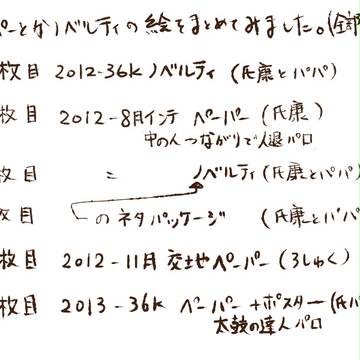 ペーとかノベルティの絵をまとめてみました。(全部
枚目 2012-36K ノベルティ (氏康とパパ)
枚目 2012-8月インテ ペーパー (氏康)
中の人つながりで人退パロ
枚目 〃 ノベルティ (氏康とパパ)
枚目 のネタパッケージ (氏康とパパ)
枚目 2012-11月 交地ペーパー (ろしゅく)
枚目 2013-36K ペーパー+ポスター (氏パ
太鼓の達人パロ